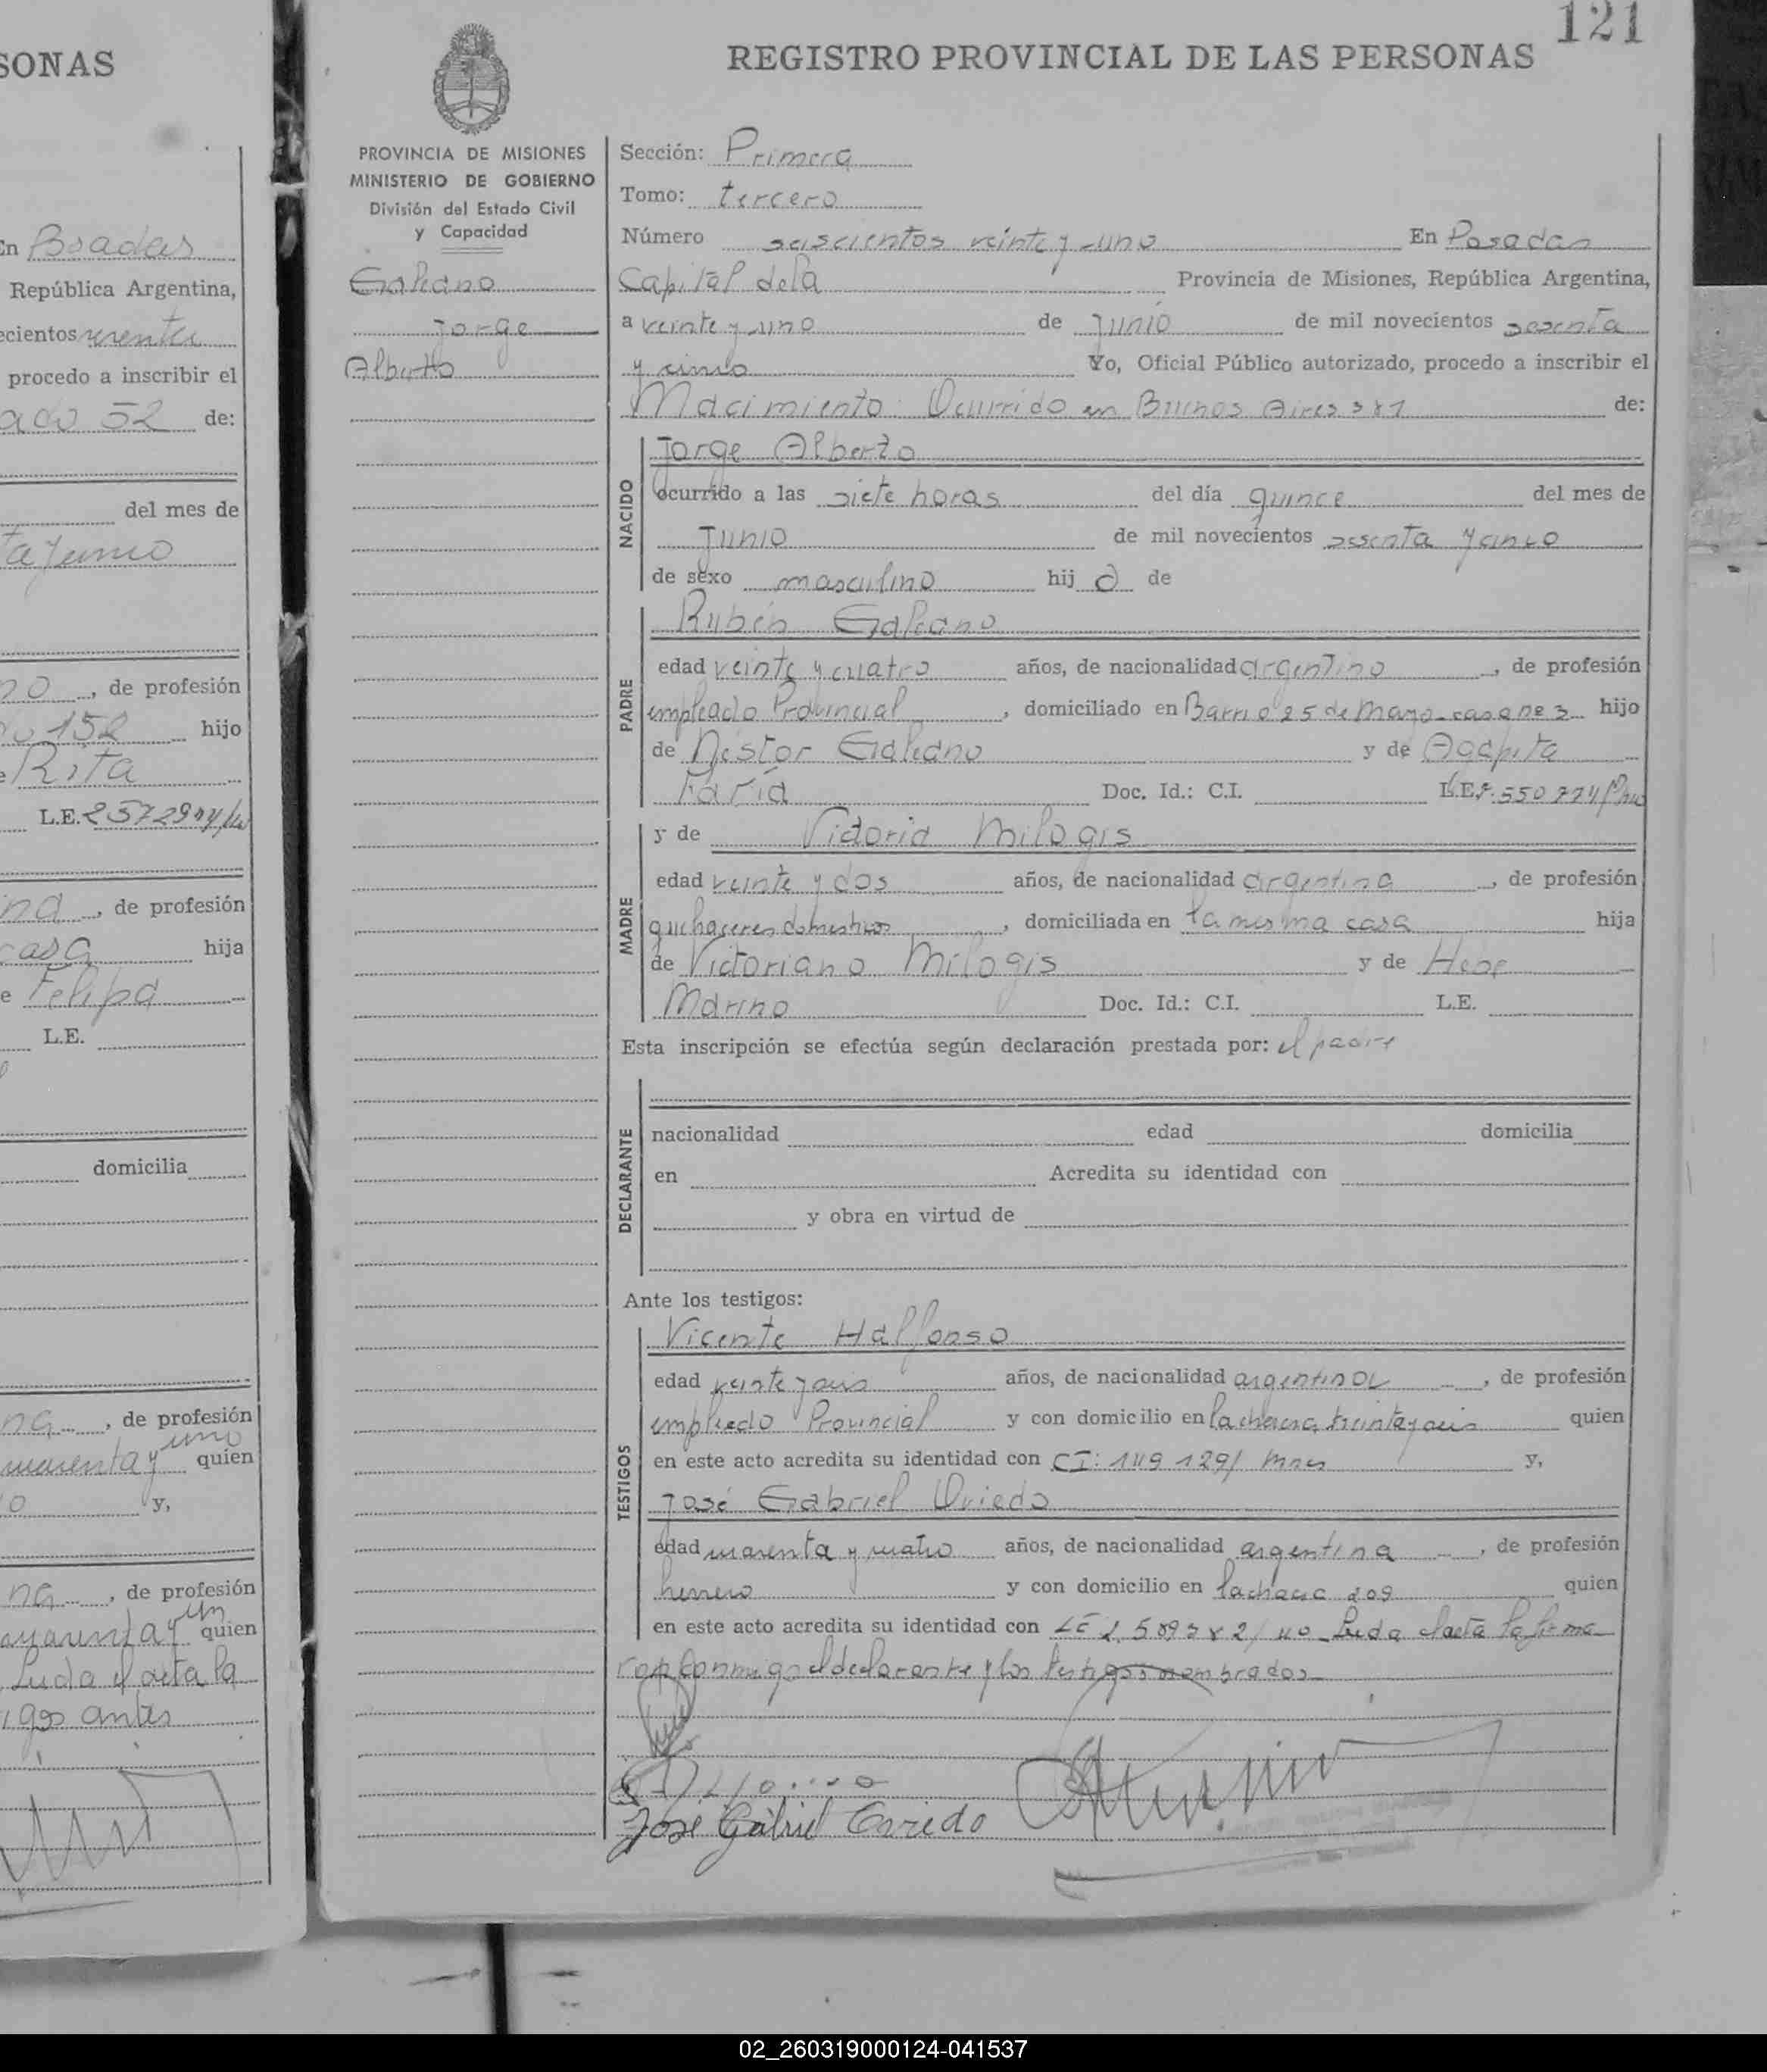 SONAS
En Posadas
República Argentina,
ecientos sesenta
procedo a inscribir el
ado 52 de:
del mes de
ta y cinco
no, de profesión
152 hijo
e Rita
L.E.
na, de profesión
casa hija
e Felipa
L.E.
domicilia
na, de profesión
cuarenta y uno quien
o y,
na, de profesión
quien
Leida el acta la
igos antes
121
REGISTRO PROVINCIAL DE LAS PERSONAS
PROVINCIA DE MISIONES
MINISTERIO DE GOBIERNO
División del Estado Civil
y Capacidad
Galeano
Jorge
Alberto
Sección: Primera
Tomo: tercero
Número seiscientos veinte y uno En Posadas
Capital de la Provincia de Misiones, República Argentina,
a veinte y uno de Junio de mil novecientos sesenta
y cinco Yo, Oficial Público autorizado, procedo a inscribir el
Nacimiento Ocurrido en Buenos Aires de:
NACIDO
Jorge Alberto
ocurrido a las siete horas del día quince del mes de
Junio de mil novecientos sesenta y cinco
de sexo masculino hij o de
PADRE
Rubén Galeano
edad veinte y cuatro años, de nacionalidad argentino, de profesión
empleado Provincial, domiciliado en Barrio 25 de Mayo casa nº 3 hijo
de Néstor Galeano y de Agapita
Faría Doc. Id.: C.I. L.E.
MADRE
y de Victoria Milogis
edad veinte y dos años, de nacionalidad argentina, de profesión
quehaceres domesticos, domiciliada en la misma casa hija
de Victoriano Milogis y de Hebe
Marino Doc. Id.: C.I. L.E.
Esta inscripción se efectúa según declaración prestada por: el padre
DECLARANTE
nacionalidad edad domicilia
en Acredita su identidad con
y obra en virtud de
Ante los testigos:
TESTIGOS
Vicente Halfonso
edad veinte y seis años, de nacionalidad argentina, de profesión
empleado Provincial y con domicilio en la chacra treinta y seis quien
en este acto acredita su identidad con CI: 149 129/ Mnes y,
José Gabriel Oviedo
edad cuarenta y cuatro años, de nacionalidad argentina, de profesión
herrero y con domicilio en la chacra 209 quien
en este acto acredita su identidad con LE Leida el acta la firma
con conmigo el declarante y los testigos nombrados
José Gabriel Oviedo
02_260319000124-041537